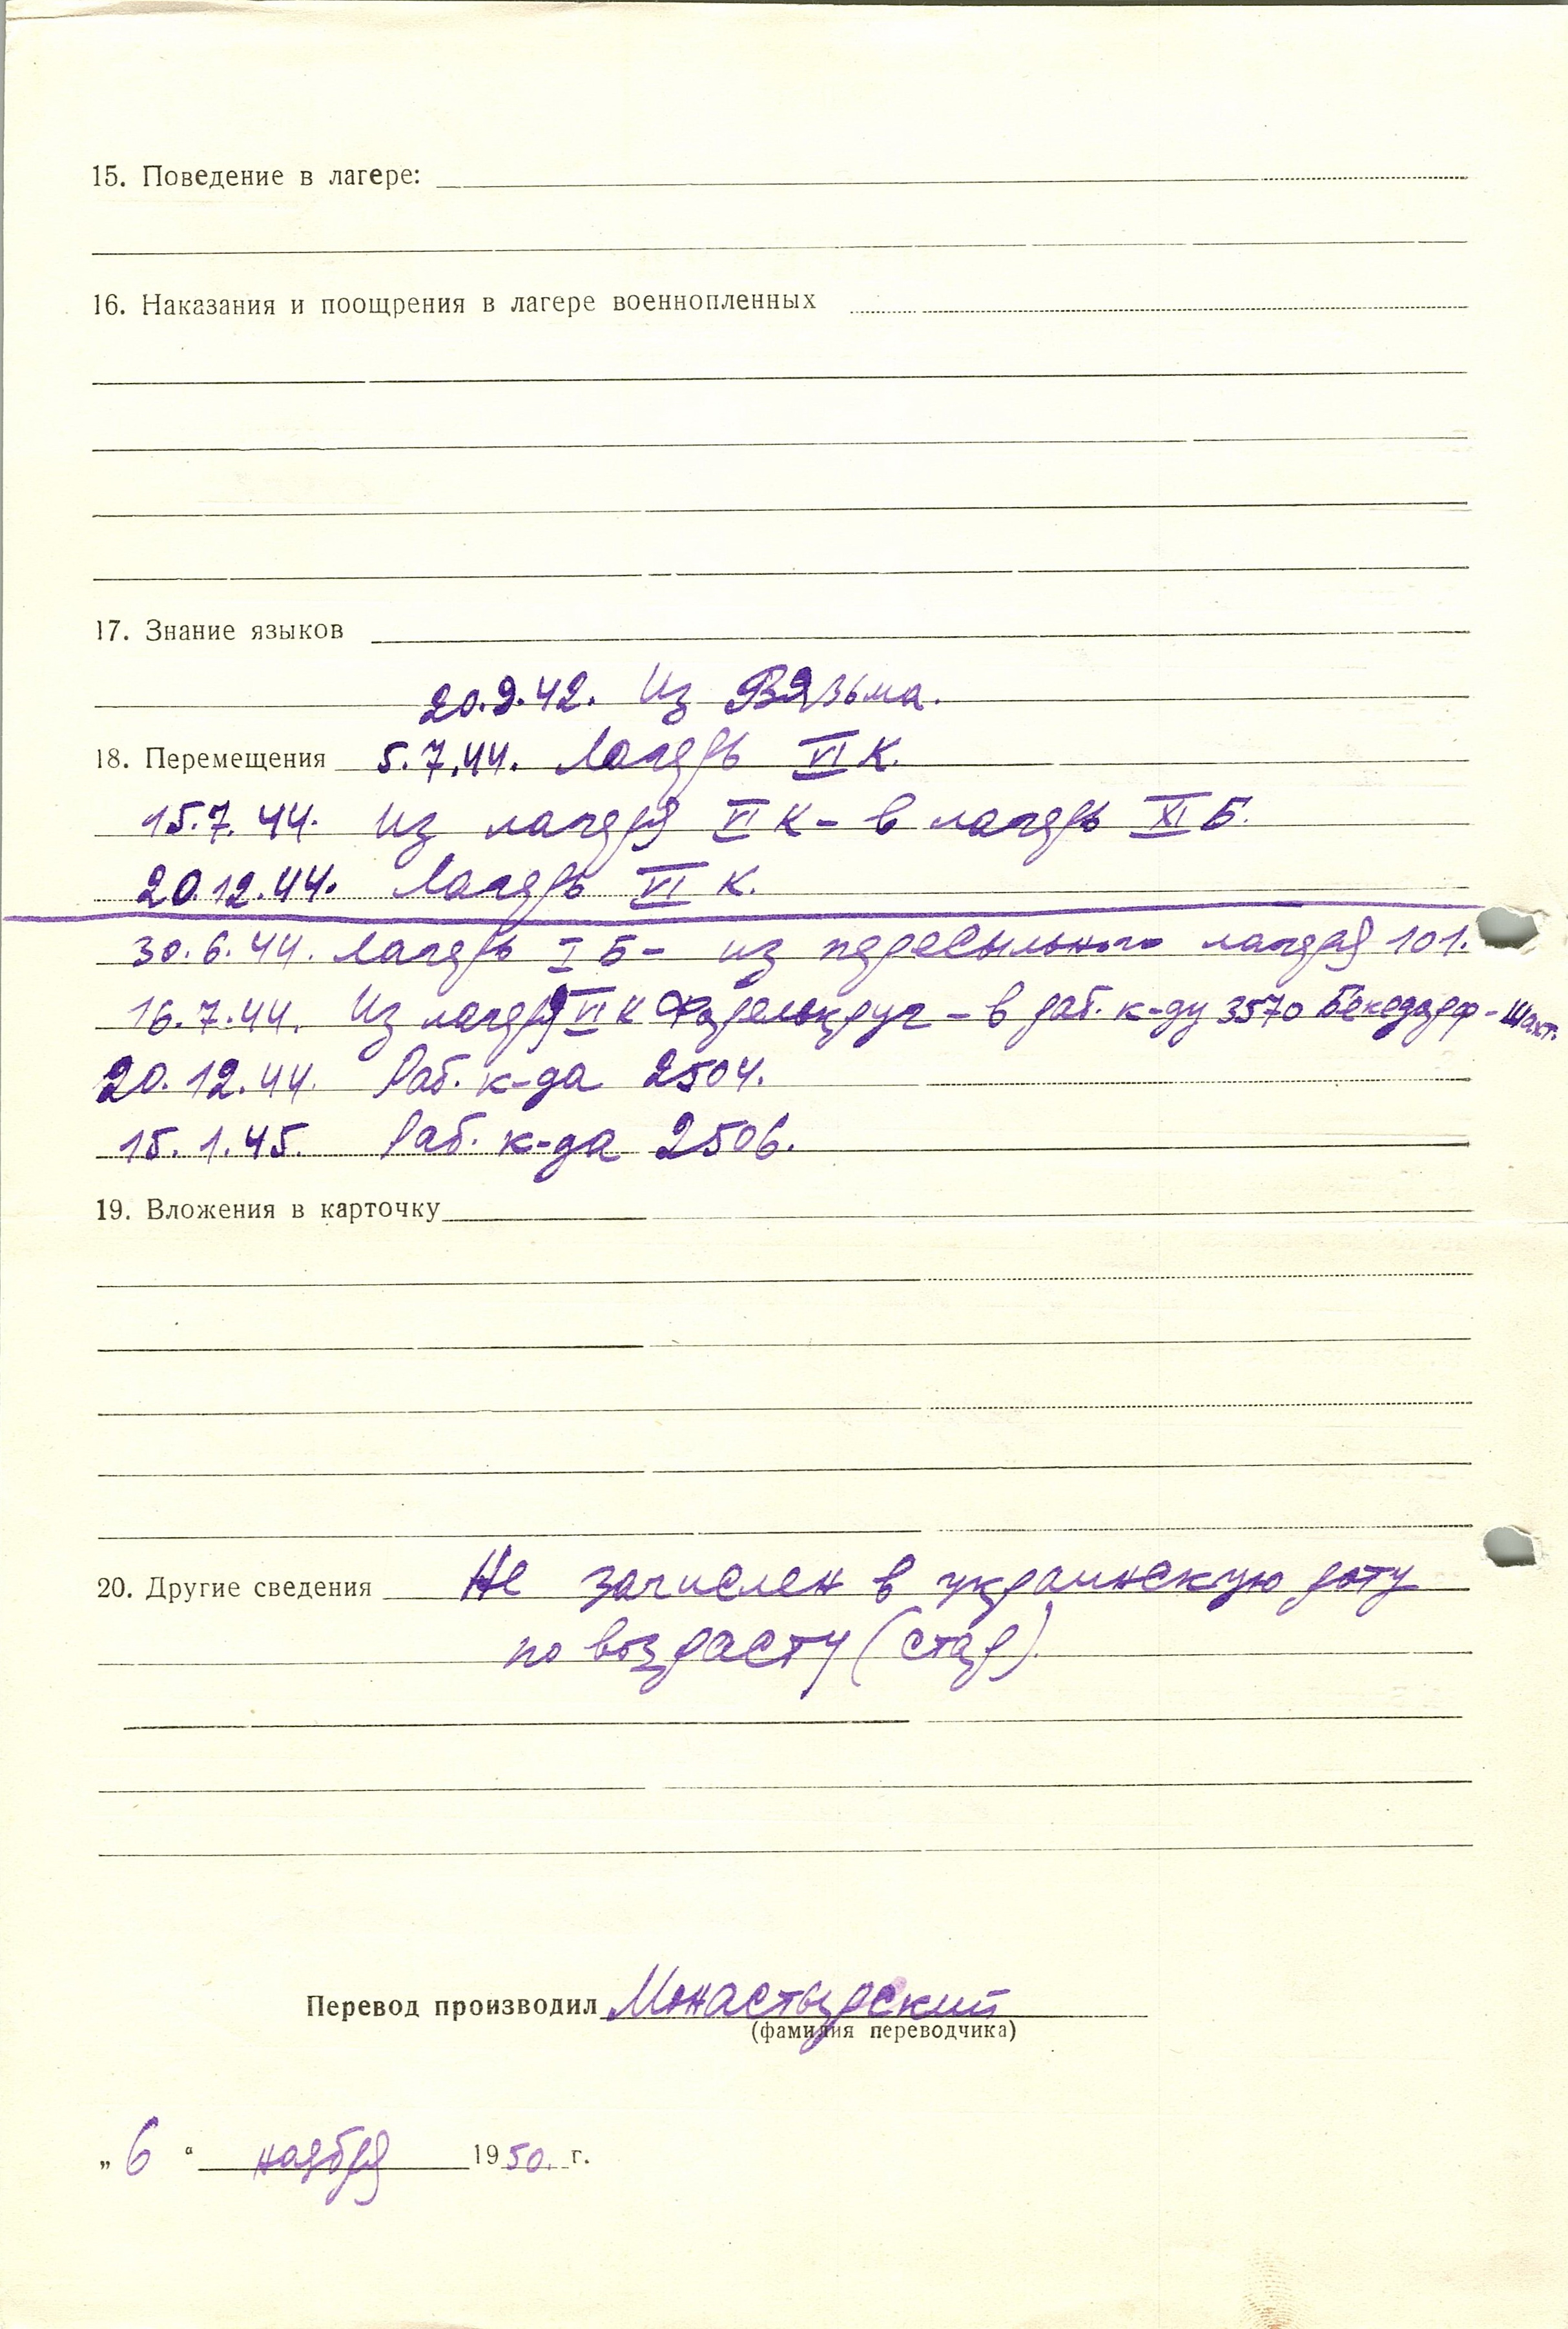 15. Поведение в лагере:
16. Наказания и поощрения в лагере военнопленных
17. Знание языков
20.9.42. Из Вязьма.
18. Перемещения 5.7.44. Лагерь VI К.
15.7.44. Из лагеря VI К – в лагерь XI Б.
20.12.44. Лагерь VI К.
30.6.44. Лагерь I Б – из пересыльного лагеря 101.
16.7.44. Из лагеря VI К – в раб. к-ду 3570
20.12.44. Раб. к-да 2504.
15.1.45. Раб. к-да 2506.
19. Вложения в карточку
20. Другие сведения Не зачислен в украинскую роту
по возрасту (стар).
Перевод производил Монастырский
(фамилия переводчика)
„ 6 “ ноября 1950. г.